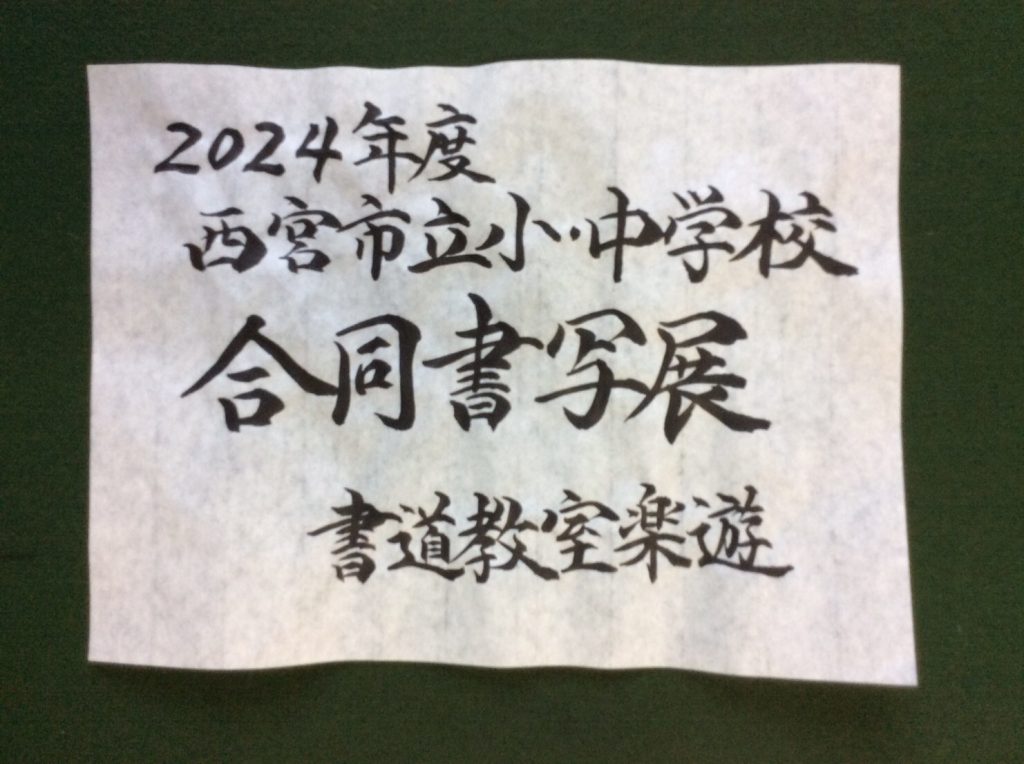 2024年度
西宮市立小・中学校
合同書写展
書道教室楽遊